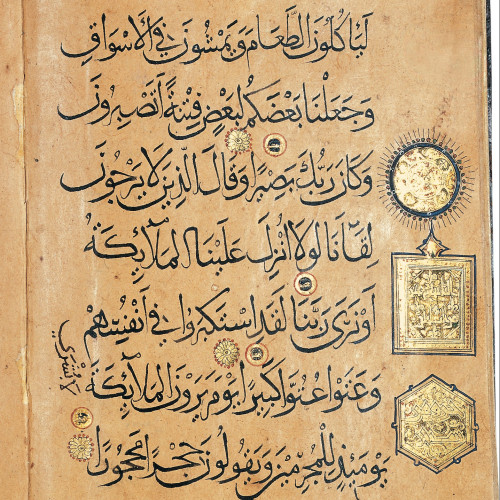 لَيَأْكُلُونَ الطَّعَامَ وَيَمْشُونَ فِي الْأَسْوَاقِ
وَجَعَلْنَا بَعْضَكُمْ لِبَعْضٍ فِتْنَةً أَتَصْبِرُونَ
وَكَانَ رَبُّكَ بَصِيرًا وَقَالَ الَّذِينَ لَا يَرْجُونَ
لِقَاءَنَا لَوْلَا أُنْزِلَ عَلَيْنَا الْمَلَائِكَةُ
أَوْ نَرَى رَبَّنَا لَقَدِ اسْتَكْبَرُوا فِي أَنْفُسِهِمْ
وَعَتَوْا عُتُوًّا كَبِيرًا يَوْمَ يَرَوْنَ الْمَلَائِكَةَ
لَا بُشْرَى
يَوْمَئِذٍ لِلْمُجْرِمِينَ وَيَقُولُونَ حِجْرًا مَحْجُورًا